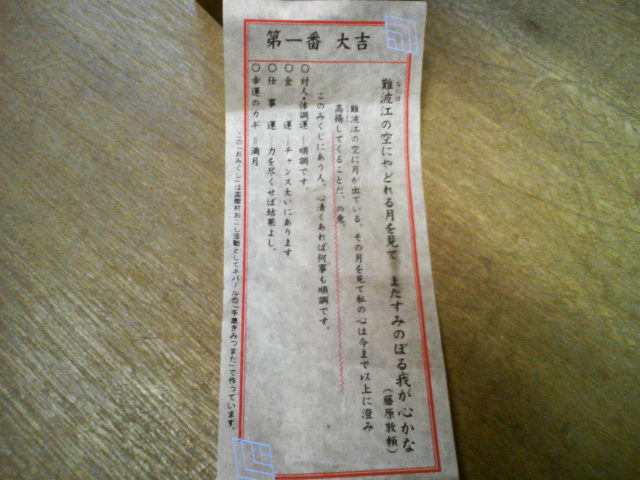 第一番 大吉
難波江の空にやどれる月を見て またすみのぼる我が心かな
なには
(藤原敦頼)
難波江の空に月が出ている。その月を見て私の心は今まで以上に澄み
高揚してくることだ、の意。
このみくじにあう人、心清くあれば何事も順調です。
〇対人・体調運―順調です。
〇金運―チャンス大いにあります
〇仕事運―力を尽くせば結果よし。
〇幸運のカギ=満月
この「おみくじ」は国際村おこし活動としてネパールの「手漉きみつまた」で作っています。